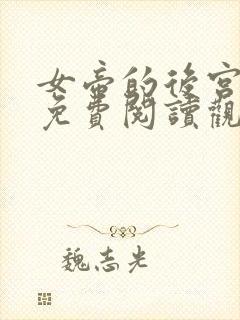 女帝的後宮
免費閱讀觀
魏志光